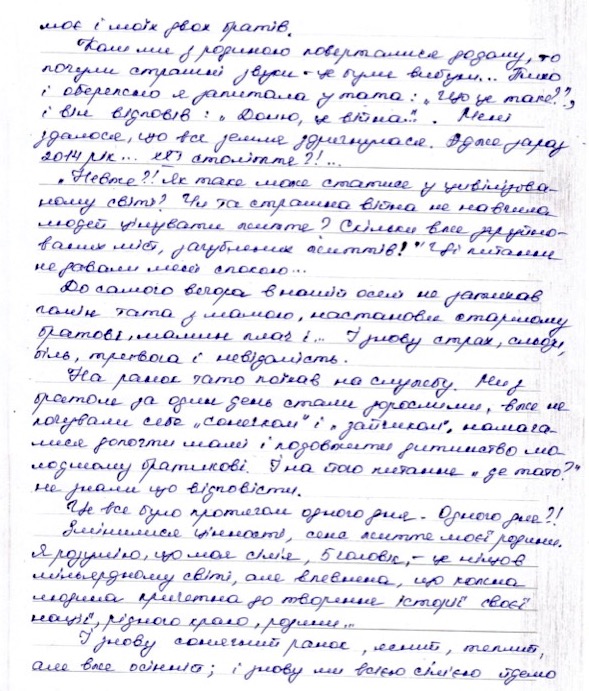 моє і моїх двох братів.
Коли ми з родиною поверталися додому, то
почули страшні звуки - це були вибухи... Тихо
і обережно я запитала у тата: „Що це таке?",
і він відповів: „Доню, це війна". Мені
здалося, що вся земля здригнулася. Адже зараз
2014 рік... ХХІ століття?!...
„Невже?! Як таке може статися у цивілізова-
ному світі? Чи та страшна війна не навчила
людей цінувати життя? Скільки вже зруйно-
ваних міст, загублених життів!" Ці питання
не давали мені спокою...
До самого вечора в нашій оселі не затихав
гомін тата з мамою, настанови старшому
братові, мамин плач і... І знову страх, сльози,
біль, тривога і невідомість.
На ранок тато поїхав на службу. Ми з
братом за один день стали дорослими, вже не
почували себе „сонечком" і „зайчиком", намага-
лися допогти мамі і подовжити дитинство мо-
лодшому братикові. І на його питання „де тато?"
не знали що відповісти.
Це все було протягом одного дня. Одного дня?!
Змінилися цінності, сенс життя моєї родини.
Я розумію, що моя сім'я, 5 чоловік, - це ніщо в
мільярдному світі, але впевнена, що кожна
людина причетна до творення історії своєї
нації, рідного краю, родини...
І знову сонячний ранок, ясний, теплий,
але вже осінній; і знову ми всією сім'єю йдемо